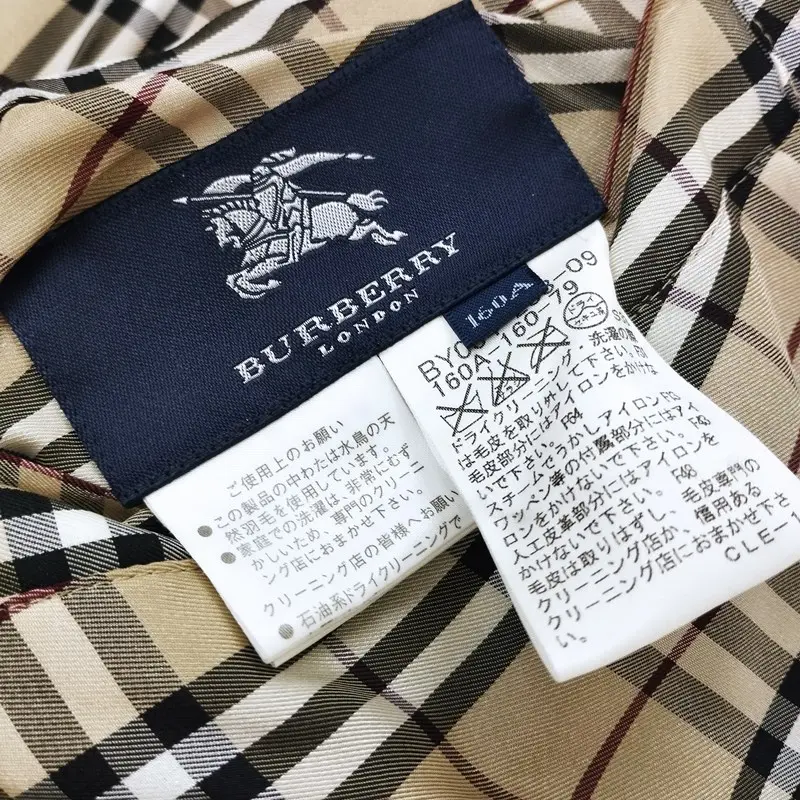 BURBERRY
LONDON
160A
ご使用上のお願い
●この製品の中わたは水鳥の天
然羽毛を使用しています。
●家庭での洗濯は、非常にむず
かしいため、専門のクリーニ
ング店におまかせ下さい。
クリーニング店の皆様へお願い
●石油系ドライクリーニングで
-09
160A-160-79
ドライ
セキユ系
ドライクリーニング
は毛皮を取り外して下さい。F01
毛皮部分にはアイロンをかけな
いで下さい。F04
スチームでうかしアイロンF13
ワッペン等の付属部分にはアイ
ロンをかけないで下さい。F43
人工皮革部分にはアイロンを
かけないで下さい。F48
毛皮は取りはずし、毛皮専門の
クリーニング店か、信用ある
クリーニング店におまかせ下さ
い。
CLE-1